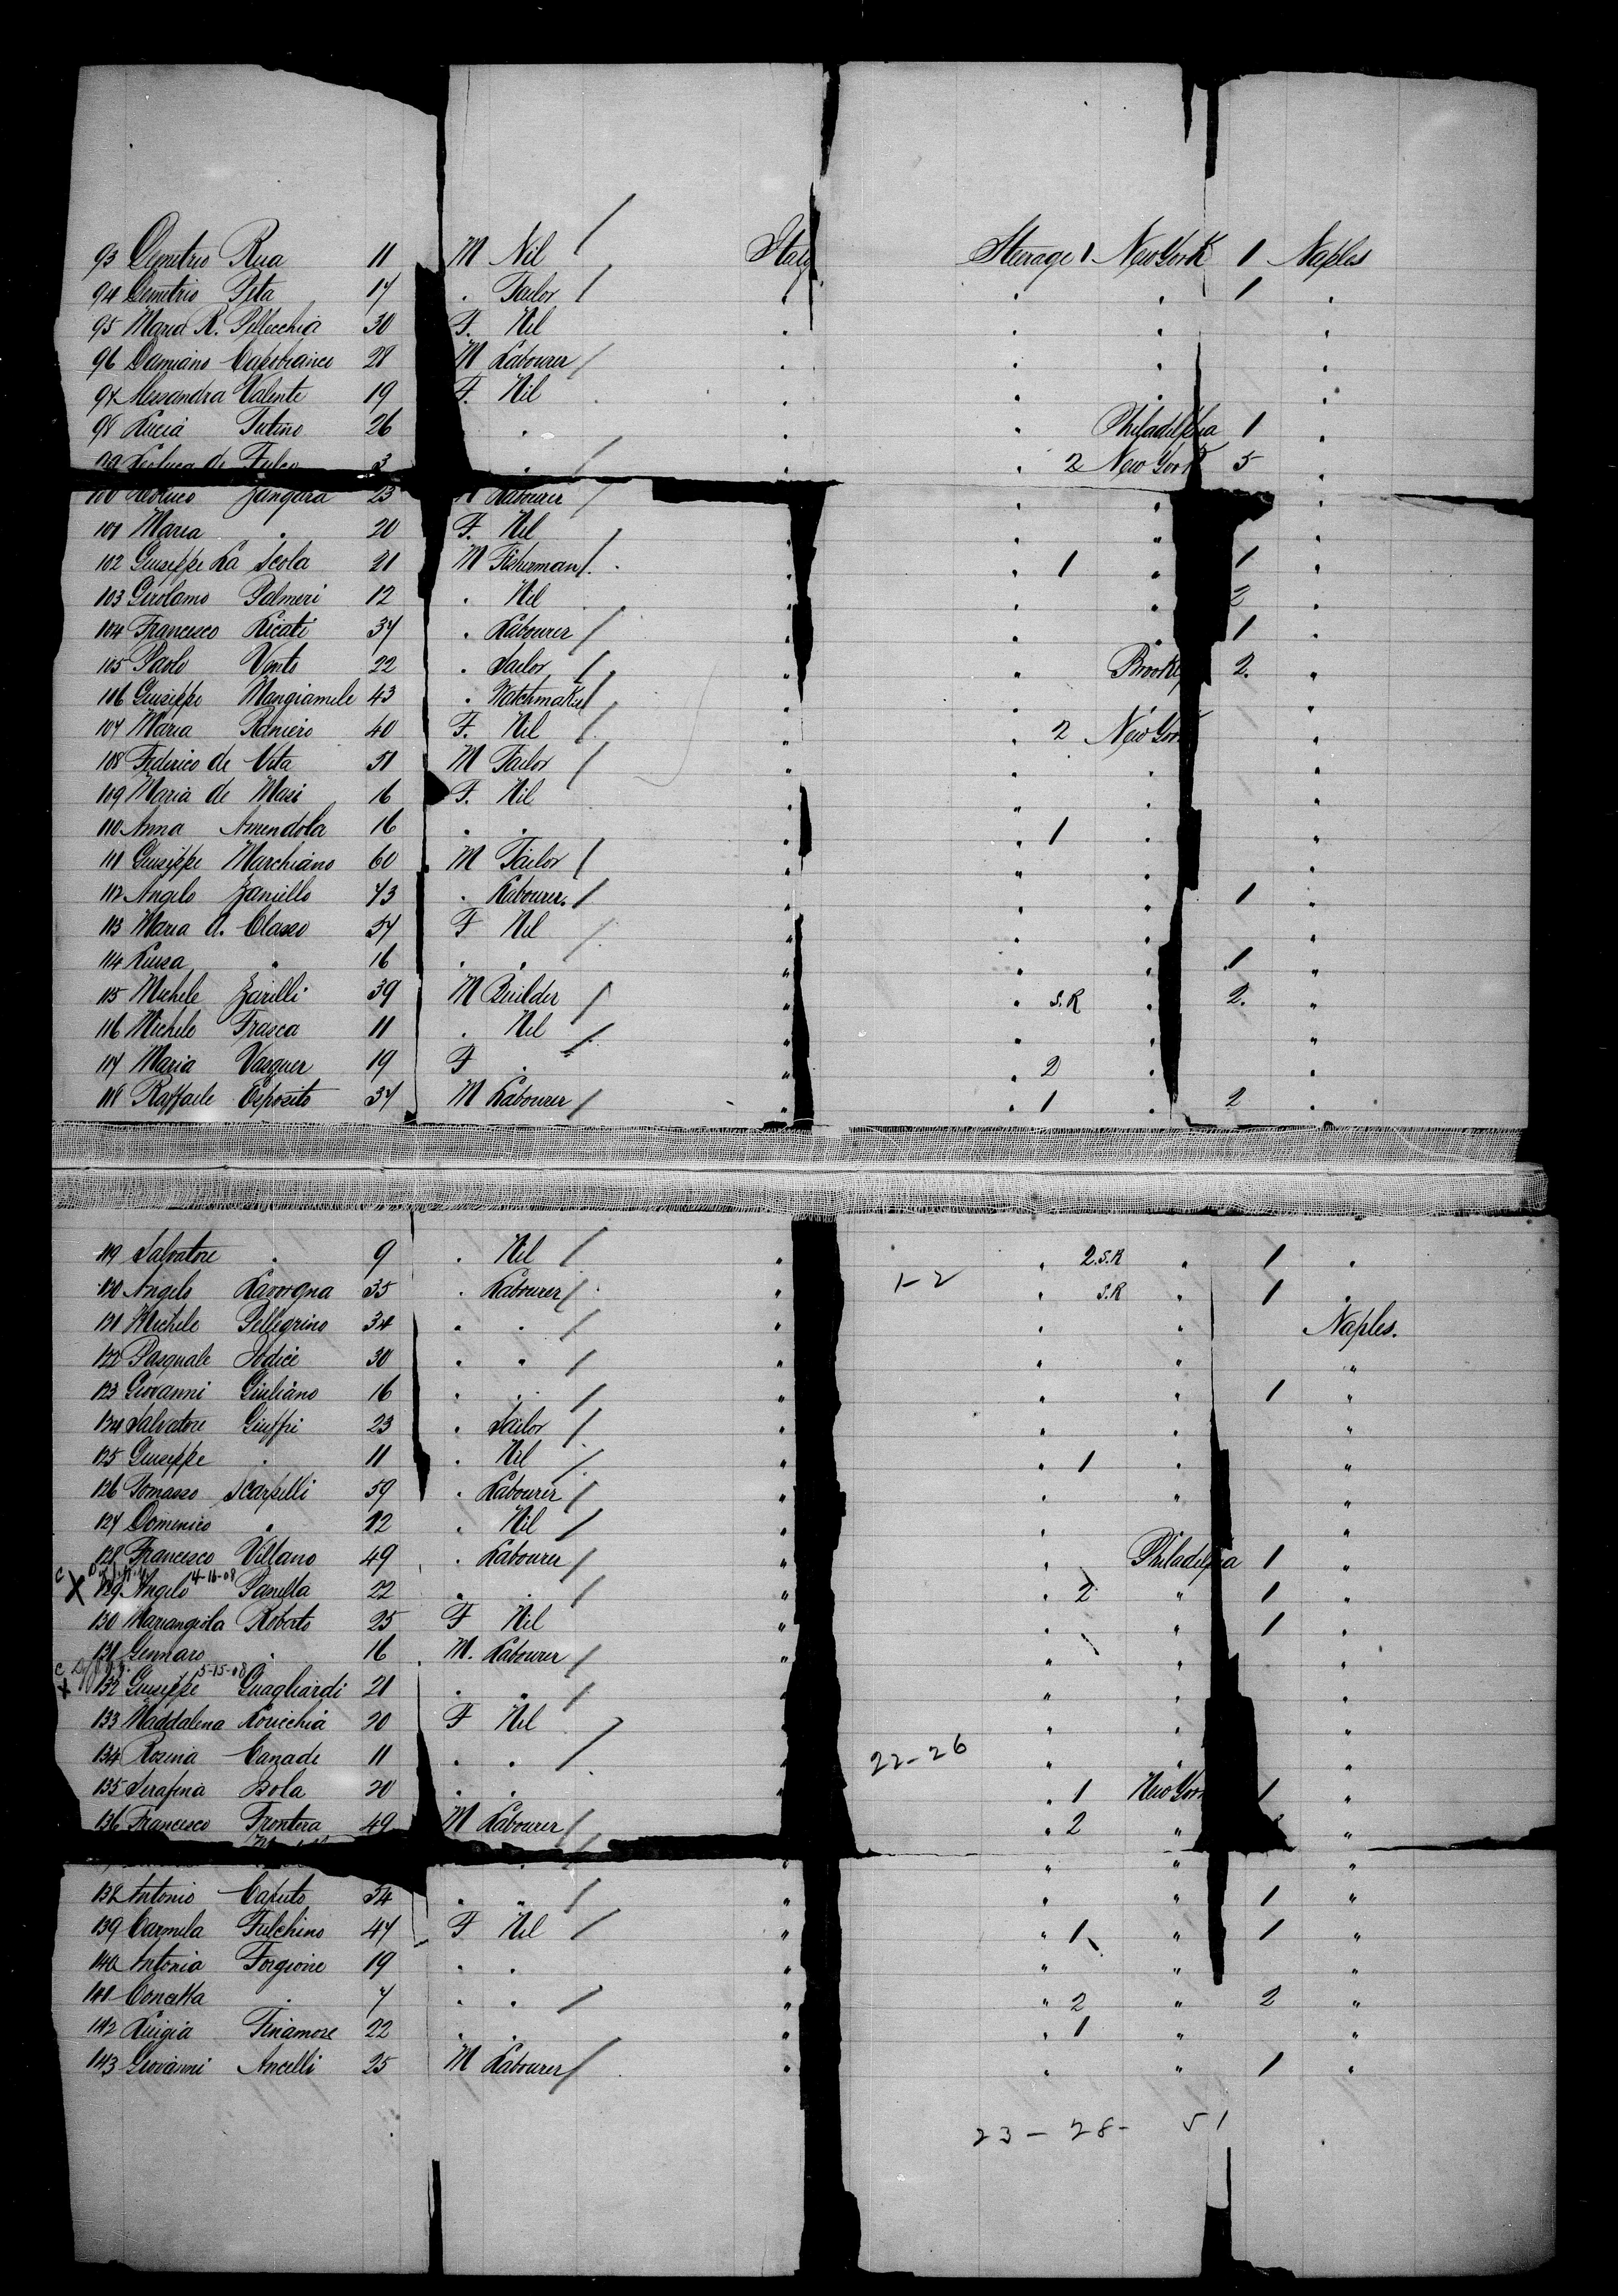 93 Demetrio Rua 11 M Nil / Italy Steerage 1 New York 1 Naples
94 Demetrio Pita 17 . Tailor / " " " 1 "
95 Maria R. Pellecchia 30 F. Nil " " " "
96 Damiano Capobianco 28 M Labourer / " " " "
97 Alessandra Valente 19 F. Nil " " " "
98 Lucia Tutino 26 . " " Philadelphia 1 "
99 de Fulco 3 . / " " 2 New York 5 "
100 Zangara 23 M Labourer / " " "
101 Maria " 20 F. Nil / " " " "
102 Giuseppe La Scola 21 M Fisherman / " " 1 " 1 "
103 Girolamo Palmeri 12 . Nil " " " 2 "
104 Francesco Licati 37 . Labourer / " " 1 "
105 Paolo Vento 22 . Sailor / " " Brookly 2. "
106 Giuseppe Mangiamele 43 . Watchmaker / " " "
107 Maria Raniero 40 F. Nil / " " 2 New York "
108 Federico de Vita 51 M Tailor / " " " "
109 Maria de Masi 16 F. Nil " " " "
110 Anna Amendola 16 . . " 1 " "
111 Giuseppe Marchiano 60 M Tailor / " " " "
112 Angelo Zaniello 43 . Labourer / " " " 1 "
113 Maria A. Classo 57 F Nil / " " " "
114 Luisa " 16 . . " " " 1 "
115 Michele Zarilli 39 M Builder / " " S.R " 2. "
116 Michele Frasca 11 . Nil / " " " "
117 Maria Vasquer 19 F . " " 2 " "
118 Raffaele Esposito 37 M Labourer / " " 1 " 2 "
119 Salvatore " 9 . Nil / " " 2.S.R " 1 "
120 Angelo Lavorgna 35 . Labourer / " 1-2 " S.R " 1 "
121 Michele Pellegrino 34 " " / " " " Naples.
122 Pasquale Iodice 30 " " / " " " "
123 Giovanni Giuliano 16 " " / " " " 1 "
124 Salvatore Giuffri 23 . Sailor / " " " "
125 Giuseppe " 11 . Nil / " " 1 " "
126 Tomasso Scarpelli 39 . Labourer / " " " "
127 Domenico " 12 . Nil / " " "
128 Francesco Villano 49 . Labourer / " " Philadelphia 1 "
C X 4-16-08
129 Angelo Panella 22 . . / " " 2 " 1 "
130 Mariangiola Roberto 25 F Nil " " " 1 "
131 Gennaro " 16 M. Labourer / " " " "
C X 5-15-08
132 Giuseppe Guagliardi 21 . . / " " "
133 Maddalena Loricchia 20 F Nil " " "
134 Rosina Canade 11 . . / 22-26 " " "
135 Serafina Bola 20 . . " 1 New York 1 "
136 Francesco Frontera 49 M Labourer / " 2 " "
. / " " " "
138 Antonio Caputo 54 " " / " " " 1 "
139 Carmela Fulchino 47 F Nil / " " 1 " 1 "
140 Antonia Forgione 19 . . " " " "
141 Concetta " 7 . . / " " 2 " 2 "
142 Luigia Finamore 22 . . " " 1 " "
143 Giovanni Ancelli 25 M Labourer / " " " 1 "
23 - 28 - 51